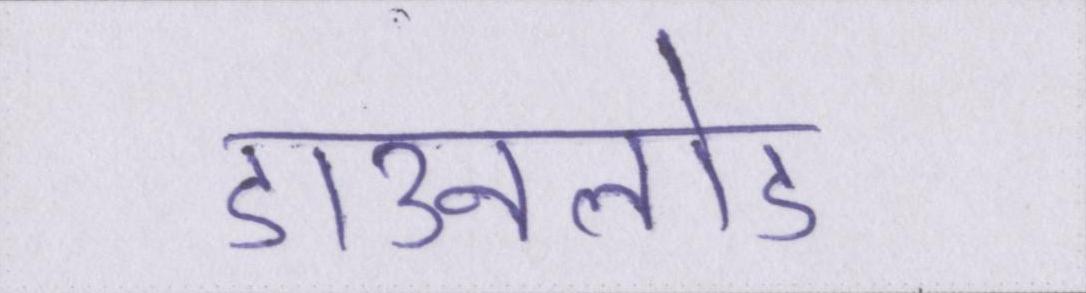 डाउनलोड